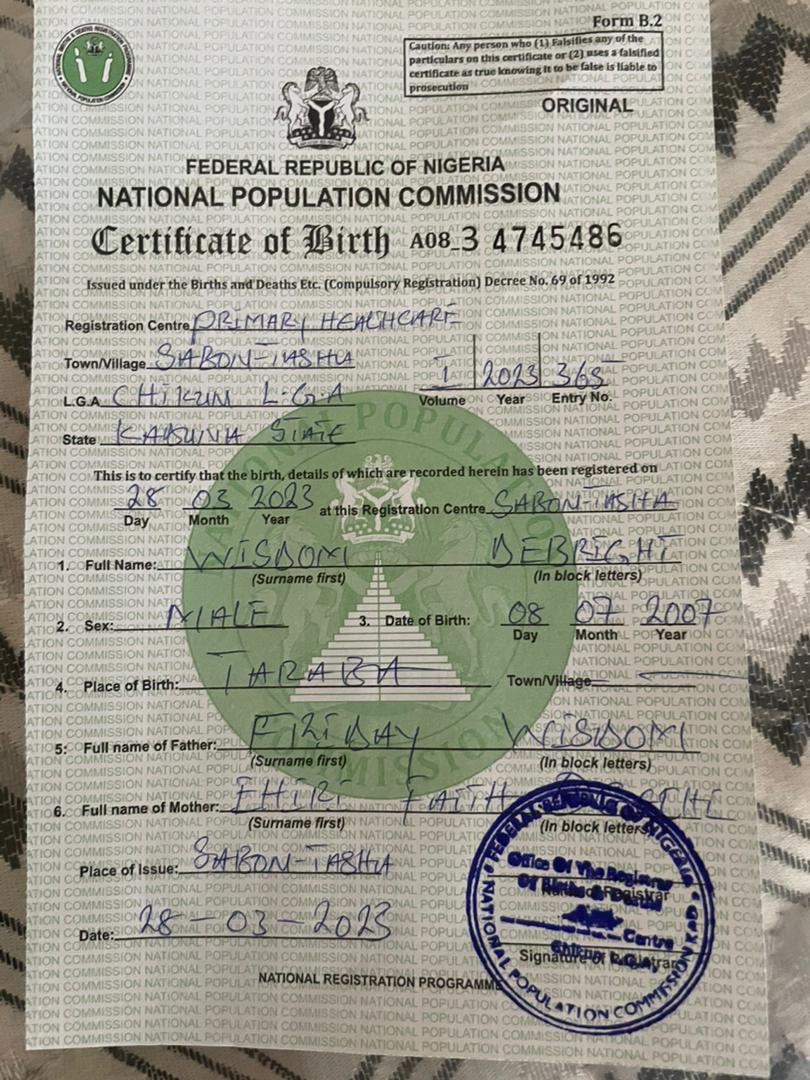 Form B.2
Caution: Any person who (1) Falsifies any of the
particulars on this certificate or (2) uses a falsified
certificate as true knowing it to be false is liable to
prosecution
ORIGINAL
FEDERAL REPUBLIC OF NIGERIA
NATIONAL POPULATION COMMISSION
Certificate of Birth A08-3 4745486
Issued under the Births and Deaths Etc. (Compulsory Registration) Decree No. 69 of 1992
Registration Centre PRIMARY HEALTHCARE
Town/Village SABON-TASHA
L.G.A CHIKUN L.G.A
I 2023 365
Volume Year Entry No.
State KADUNA STATE
This is to certify that the birth, details of which are recorded herein has been registered on
28 03 2023 at this Registration Centre SABON-TASHA
Day Month Year
1. Full Name: WISDOM DEBRIGHT
(Surname first) (In block letters)
2. Sex: MALE 3. Date of Birth: 08 07 2007
Day Month Year
4. Place of Birth: TARABA Town/Village
5: Full name of Father: FRIDAY WISDOM
(Surname first) (In block letters)
6. Full name of Mother: FAITH
(Surname first) (In block letters)
Place of Issue: SABON-TASHA
Registrar
Date: 28-03-2023
Signature of Registrar
NATIONAL REGISTRATION PROGRAMME
FEDERAL REPUBLIC OF NIGERIA
Office Of The Registrar
Of Births &
Centre
Chikun L.G.A
NATIONAL POPULATION COMMISSION KAD